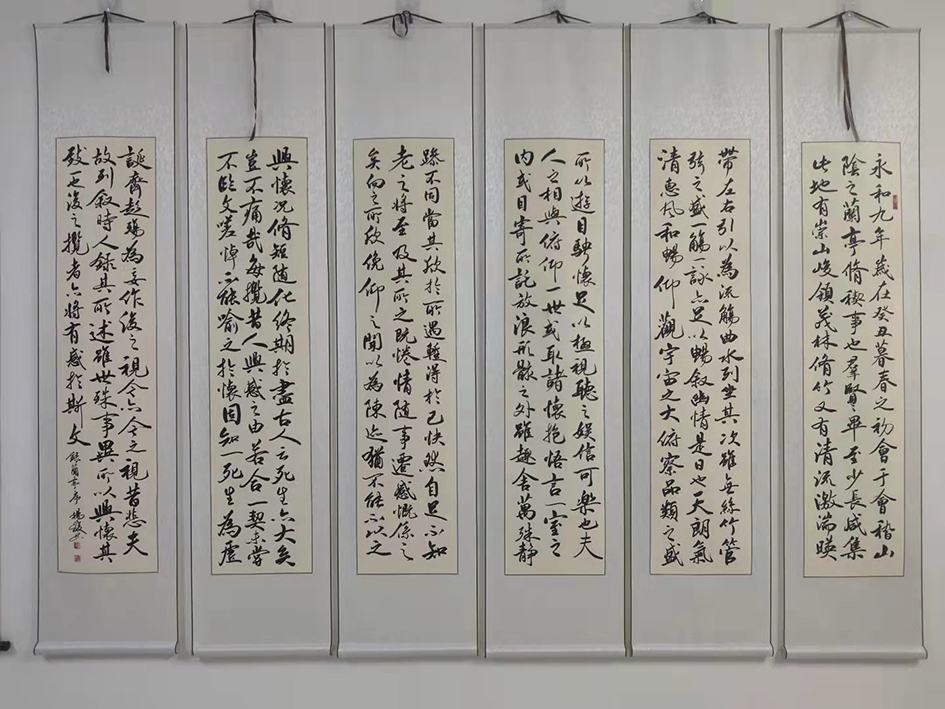 永和九年歲在癸丑暮春之初會于會稽山
陰之蘭亭脩稧事也羣賢畢至少長咸集
此地有崇山峻領茂林脩竹又有清流激湍暎
帶左右引以為流觴曲水列坐其次雖無絲竹管
弦之盛一觴一詠亦足以暢敘幽情是日也天朗氣
清惠風和暢仰觀宇宙之大俯察品類之盛
所以遊目騁懷足以極視聽之娛信可樂也夫
人之相與俯仰一世或取諸懷抱悟言一室之
內或因寄所託放浪形骸之外雖趣舍萬殊靜
躁不同當其欣於所遇暫得於己快然自足不知
老之將至及其所之既惓情隨事遷感慨係之
矣向之所欣俛仰之閒以為陳迹猶不能不以之
興懷況脩短隨化終期於盡古人云死生亦大矣
豈不痛哉每攬昔人興感之由若合一契未嘗
不臨文嗟悼不能喻之於懷固知一死生為虛
誕齊彭殤為妄作後之視今亦今之視昔悲夫
故列敘時人錄其所述雖世殊事異所以興懷其
致一也後之攬者亦將有感於斯文 錄蘭亭序 楊